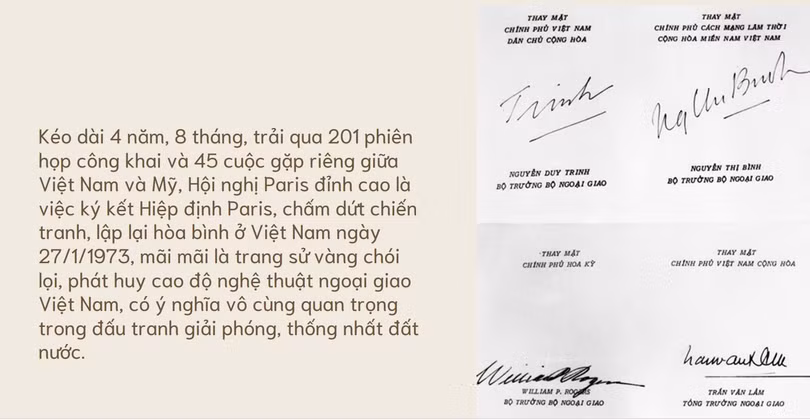 Kéo dài 4 năm, 8 tháng, trải qua 201 phiên
họp công khai và 45 cuộc gặp riêng giữa
Việt Nam và Mỹ, Hội nghị Paris đỉnh cao là
việc ký kết Hiệp định Paris, chấm dứt chiến
tranh, lập lại hòa bình ở Việt Nam ngày
27/1/1973, mãi mãi là trang sử vàng chói
lọi, phát huy cao độ nghệ thuật ngoại giao
Việt Nam, có ý nghĩa vô cùng quan trọng
trong đấu tranh giải phóng, thống nhất đất
nước.
THAY MẶT
CHÍNH PHỦ VIỆT NAM
DÂN CHỦ CỘNG HÒA
Trinh
NGUYỄN DUY TRINH
BỘ TRƯỞNG BỘ NGOẠI GIAO
THAY MẶT
CHÍNH PHỦ CÁCH MẠNG LÂM THỜI
CỘNG HÒA MIỀN NAM VIỆT NAM
NGUYỄN THỊ BÌNH
BỘ TRƯỞNG BỘ NGOẠI GIAO
THAY MẶT
CHÍNH PHỦ HOA KỲ
William P. Rogers
WILLIAM P. ROGERS
BỘ TRƯỞNG BỘ NGOẠI GIAO
THAY MẶT
CHÍNH PHỦ VIỆT NAM CỘNG HÒA
TRẦN VĂN LẮM
TỔNG TRƯỞNG NGOẠI GIAO